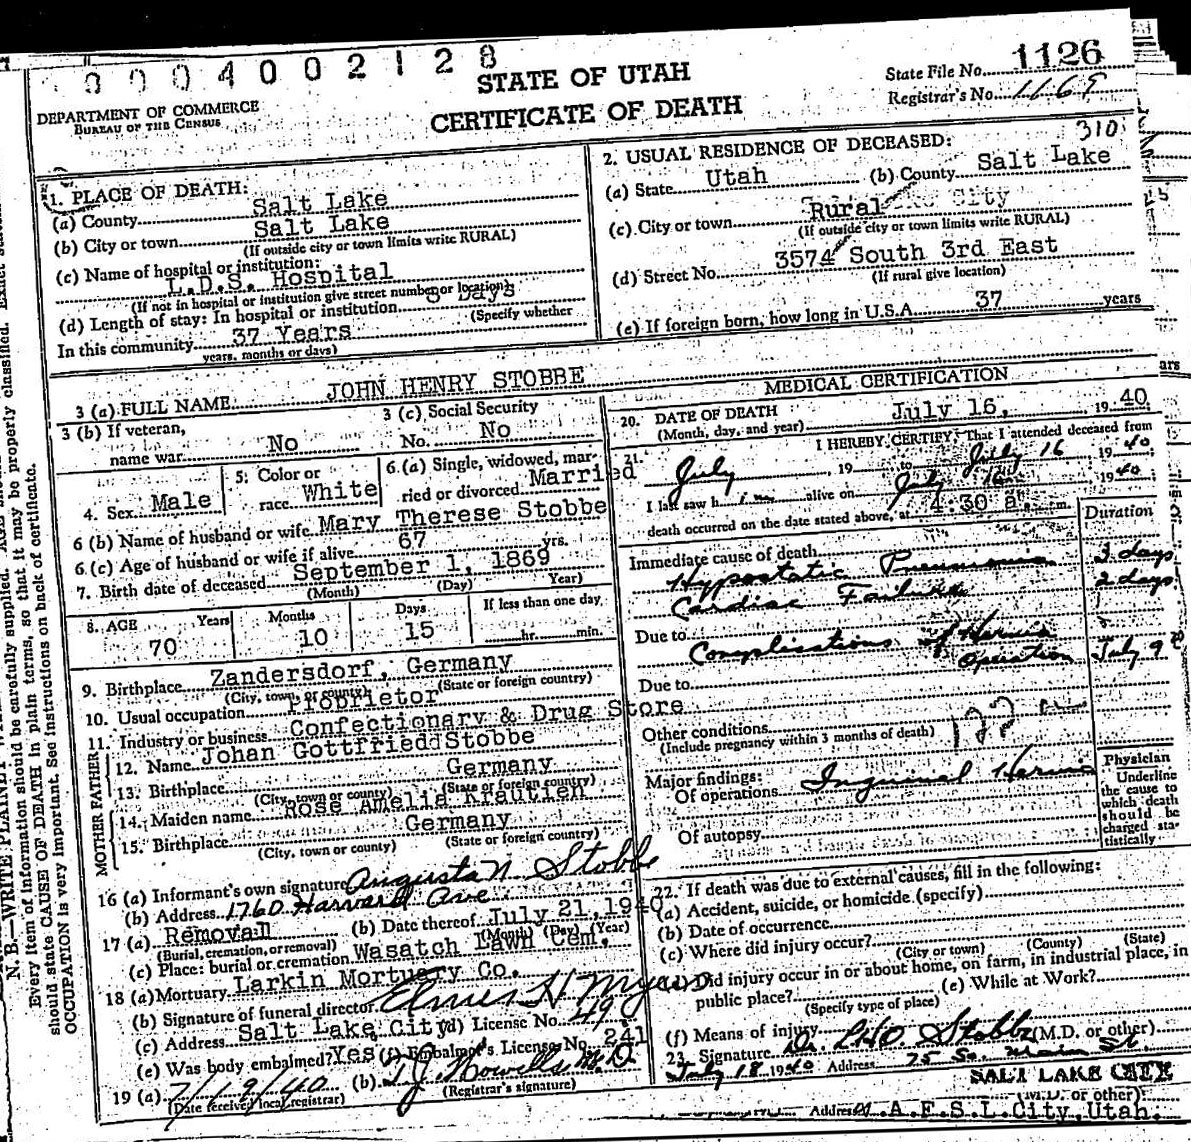 0 0 0 4 0 0 2 1 2 8
STATE OF UTAH
CERTIFICATE OF DEATH
DEPARTMENT OF COMMERCE
BUREAU OF THE CENSUS
State File No. 1126
Registrar's No. 1169
310
1. PLACE OF DEATH:
(a) County Salt Lake
(b) City or town Salt Lake
(If outside city or town limits write RURAL)
(c) Name of hospital or institution:
L.D.S. Hospital
(If not in hospital or institution give street number or location)
(d) Length of stay: In hospital or institution Days
(Specify whether
In this community 37 Years
years, months or days)
2. USUAL RESIDENCE OF DECEASED:
(a) State Utah (b) County Salt Lake
(c) City or town Rural City
(If outside city or town limits write RURAL)
(d) Street No. 3574 South 3rd East
(If rural give location)
(e) If foreign born, how long in U.S.A. 37 years
3 (a) FULL NAME JOHN HENRY STOBBE
3 (b) If veteran,
name war No
3 (c) Social Security
No. No
4. Sex Male
5. Color or
race White
6.(a) Single, widowed, mar-
ried or divorced Married
6 (b) Name of husband or wife Mary Therese Stobbe
6.(c) Age of husband or wife if alive 67 yrs.
7. Birth date of deceased September 1, 1869
(Month) (Day) Year)
8. AGE Years Months Days If less than one day
70 10 15 hr. min.
9. Birthplace Zandersdorf, Germany
(City, town, or county) (State or foreign country)
10. Usual occupation Proprietor
11. Industry or business Confectionary & Drug Store
MOTHER FATHER
12. Name Johan Gottfried Stobbe
13. Birthplace Germany
(City, town or county) (State or foreign country)
14. Maiden name Rose Amelia Krautien
15. Birthplace Germany
(City, town or county) (State or foreign country)
16 (a) Informant's own signature Augusta N Stobbe
(b) Address 1760 Harvard Ave
17 (a) Removal (b) Date thereof July 21, 1940
(Burial, cremation, or removal) (Month) (Day) (Year)
(c) Place: burial or cremation Wasatch Lawn Cem.
18 (a) Mortuary Larkin Mortuary Co.
(b) Signature of funeral director Elmer H Myers
(c) Address Salt Lake City (d) License No. 490
(e) Was body embalmed? Yes (f) Embalmer's License No. 241
19 (a) 7/19/40 (b) T J Howells M.D.
(Date received local registrar) (Registrar's signature)
MEDICAL CERTIFICATION
20. DATE OF DEATH July 16, 1940
(Month, day, and year)
21. I HEREBY CERTIFY, That I attended deceased from
July , 19 to July 16 1940
I last saw him alive on July 16 1940
death occurred on the date stated above, at 4:30 a m.
Duration
Immediate cause of death
Hypostatic Pneumonia 3 days
Cardiac Failure 2 days
Due to Complications of Hernia
operation July 9
Due to
Other conditions
(Include pregnancy within 3 months of death)
Major findings:
Of operations Inguinal Hernia
Of autopsy
Physician
Underline
the cause to
which death
should be
charged sta-
tistically
22. If death was due to external causes, fill in the following:
(a) Accident, suicide, or homicide (specify)
(b) Date of occurrence
(c) Where did injury occur?
(City or town) (County) (State)
Did injury occur in or about home, on farm, in industrial place, in
public place? (e) While at Work?
(Specify type of place)
(f) Means of injury
23. Signature Dr. Stobbe (M.D. or other)
July 18 1940 Address 75 So. Main St.
SALT LAKE CITY
(M.D. or other)
Address A.F.S.L.City, Utah.
should be carefully supplied.
may be properly classified. Exact
N.B.—WRITE PLAINLY
Every item of information should be carefully supplied.
should state CAUSE OF DEATH in plain terms, so that it may be properly classified.
OCCUPATION is very important. See instructions on back of certificate.